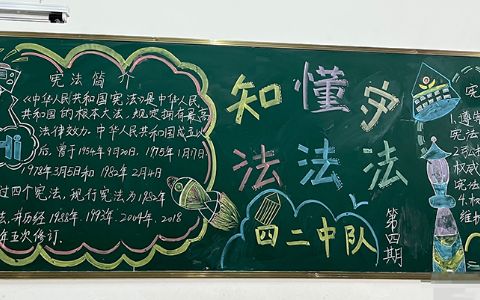 宪法简介
《中华人民共和国宪法》是中华人民
共和国的根本大法，规定拥有最高
法律效力。中华人民共和国成立以
后，曾于1954年9月20日、1975年1月17日、
1978年3月5日和1982年12月4日
过四个宪法，现行宪法为1982年
法，并历经1988、1993、2004、2018
年五次修订。
Hi
知懂守
法法法
四二中队
第四期
宪
1.遵
宪法
权威
宪法
4.权
维护